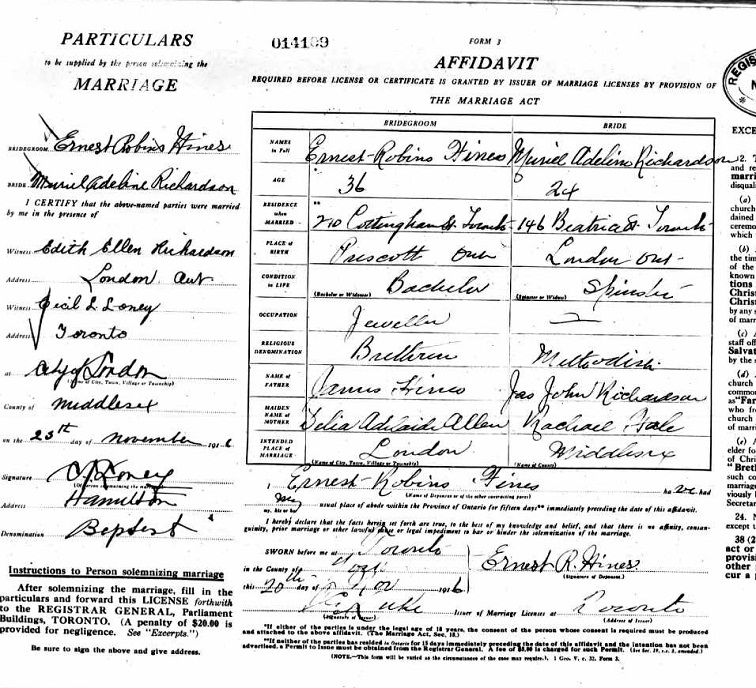 PARTICULARS
to be supplied by the person solemnizing the
MARRIAGE
BRIDEGROOM Ernest Robins Hines
BRIDE Muriel Adeline Richardson
I CERTIFY that the above-named parties were married
by me in the presence of
Witness Edith Ellen Richardson
Address London Ont
Witness Cecil L Loney
Address Toronto
at City of London
(Name of City, Town, Village or Township)
County of Middlesex
on the 25th day of November 1916
Signature Loney
(Of person solemnizing the marriage)
Address Hamilton
Denomination Baptist
Instructions to Person solemnizing marriage
After solemnizing the marriage, fill in the
particulars and forward this LICENSE forthwith
to the REGISTRAR GENERAL, Parliament
Buildings, TORONTO. (A penalty of $20.00 is
provided for negligence. See "Excerpts.")
Be sure to sign the above and give address.
FORM 3
AFFIDAVIT
REQUIRED BEFORE LICENSE OR CERTIFICATE IS GRANTED BY ISSUER OF MARRIAGE LICENSES BY PROVISION OF
THE MARRIAGE ACT
BRIDEGROOM BRIDE
NAMES in Full Ernest Robins Hines Muriel Adeline Richardson
AGE 36 24
RESIDENCE when MARRIED 210 Cottingham St. Toronto 146 Beatrice St Toronto
PLACE of BIRTH Prescott Ont London Ont
CONDITION in LIFE Bachelor Spinster
(Bachelor or Widower) (Spinster or Widow)
OCCUPATION Jeweller —
RELIGIOUS DENOMINATION Brethren Methodist
NAME of FATHER James Hines Jas John Richardson
MAIDEN NAME of MOTHER Delia Adelaide Allen Rachael
INTENDED PLACE of MARRIAGE London Middlesex
(Name of City, Town, Village or Township) (Name of County)
I Ernest Robins Hines
(Name of Deponent or of the other contracting party) had
my usual place of abode within the Province of Ontario for fifteen days** immediately preceding the date of this affidavit.
my, his or her
I hereby declare that the facts herein set forth are true, to the best of my knowledge and belief, and that there is no affinity, consan-
guinity, prior marriage or other lawful cause or legal impediment to bar or hinder the solemnization of the marriage.
SWORN before me at Toronto
in the County of York
this 20th day of Nov 1916
Ernest R. Hines
(Signature of Deponent)
(Signature of Issuer)
Issuer of Marriage Licenses at Toronto
(Address of Issuer)
*If either of the parties is under the legal age of 18 years, the consent of the person whose consent is required must be produced
and attached to the above affidavit. (The Marriage Act, Sec. 15.)
**If neither of the parties has resided in Ontario for 15 days immediately preceding the date of this affidavit and the intention has not been
advertised, a Permit to Issue must be obtained from the Registrar General. A fee of $5.00 is charged for such Permit.
(NOTE.—This form will be varied as the circumstances of the case may require.) 1 Geo. V. c. 32. Form 3.